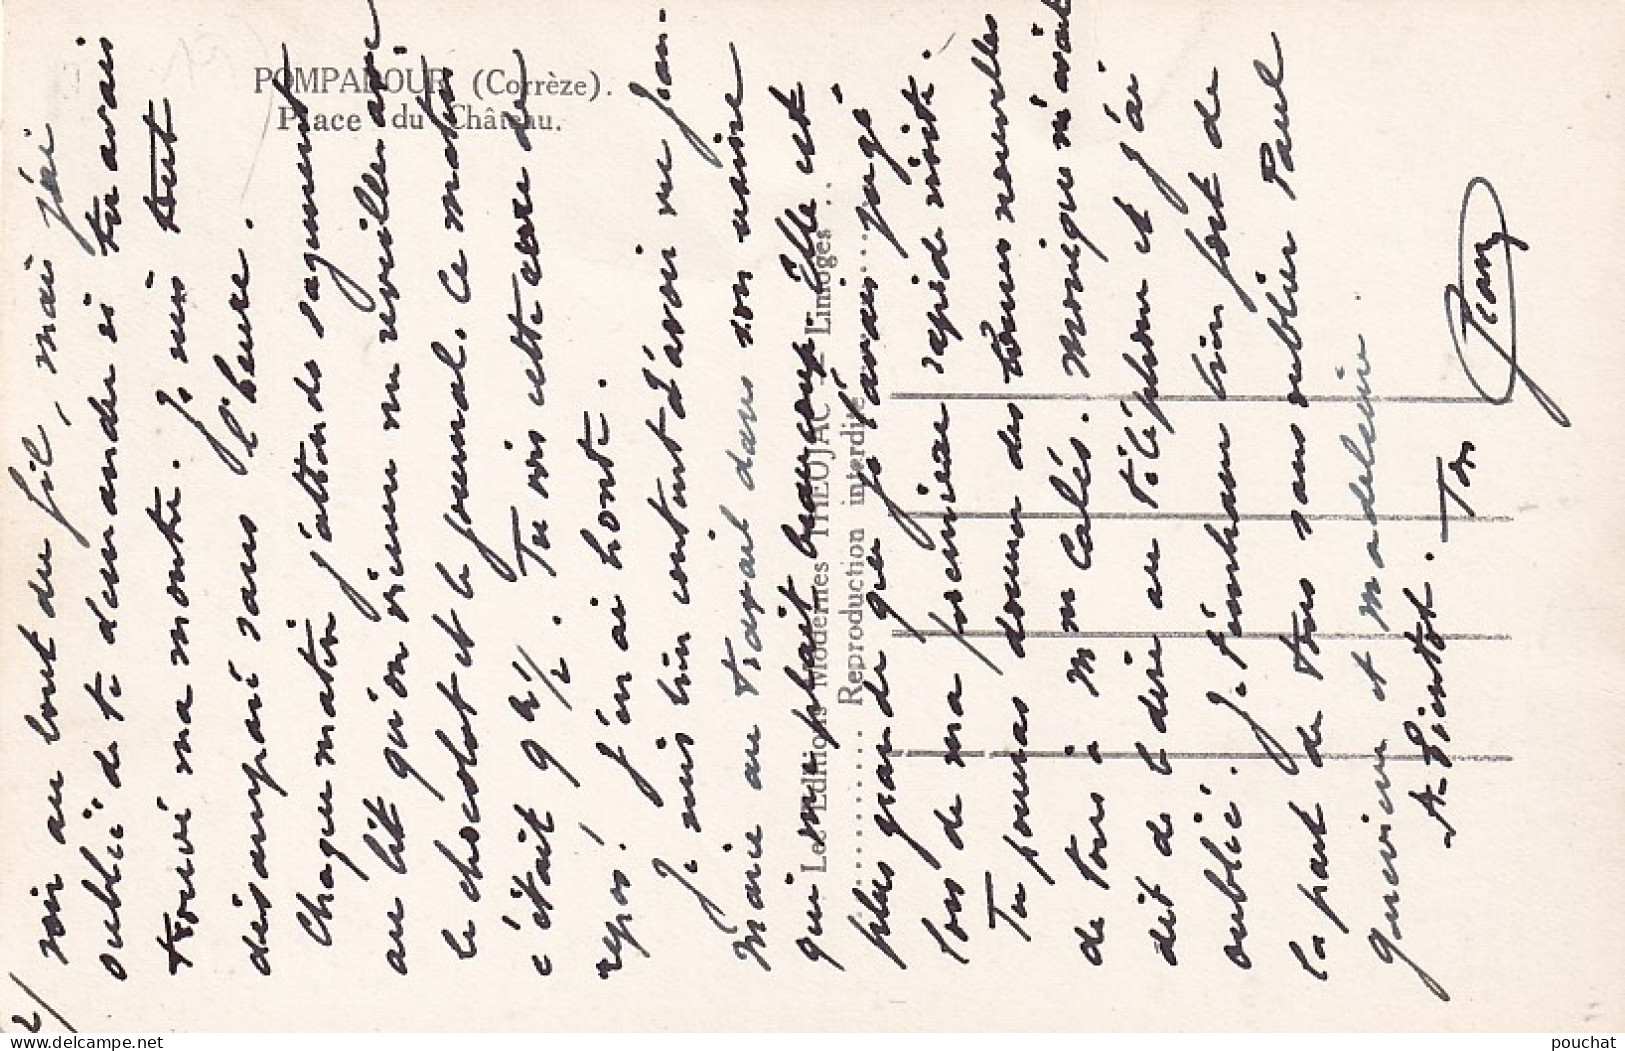 POMPADOUR (Corrèze).
Place du Château.
Les Editions Modernes THEOJAC - Limoges
Reproduction interdite
2/
voir au bout du fil, mais j'ai
oublié de te demander si tu avais
trouvé ma montre. Je suis tout
désemparé sans l'heure.
Chaque matin j'attends sagement
au lit qu'on vienne me réveiller avec
le chocolat et le journal. Ce matin
c'était 9h 1/2. Tu vois cette cure de
repos! J'en ai honte.
Je suis bien content d'avoir vu Jean-
Marie au travail dans son usine
qui me plait beaucoup. Elle est
plus grande que je l'avais jugé
lors de ma première rapide visite.
Tu pourras donner des bonnes nouvelles
de tous à M Calés. Monique m'avait
dit de le dire au téléphone et j'ai
oublié. Je t'embrasse bien fort de
la part de tous sans oublier Paul
Geneviève et Madeleine.
A bientôt. Ton
Jean
pouchat
delcampe.net